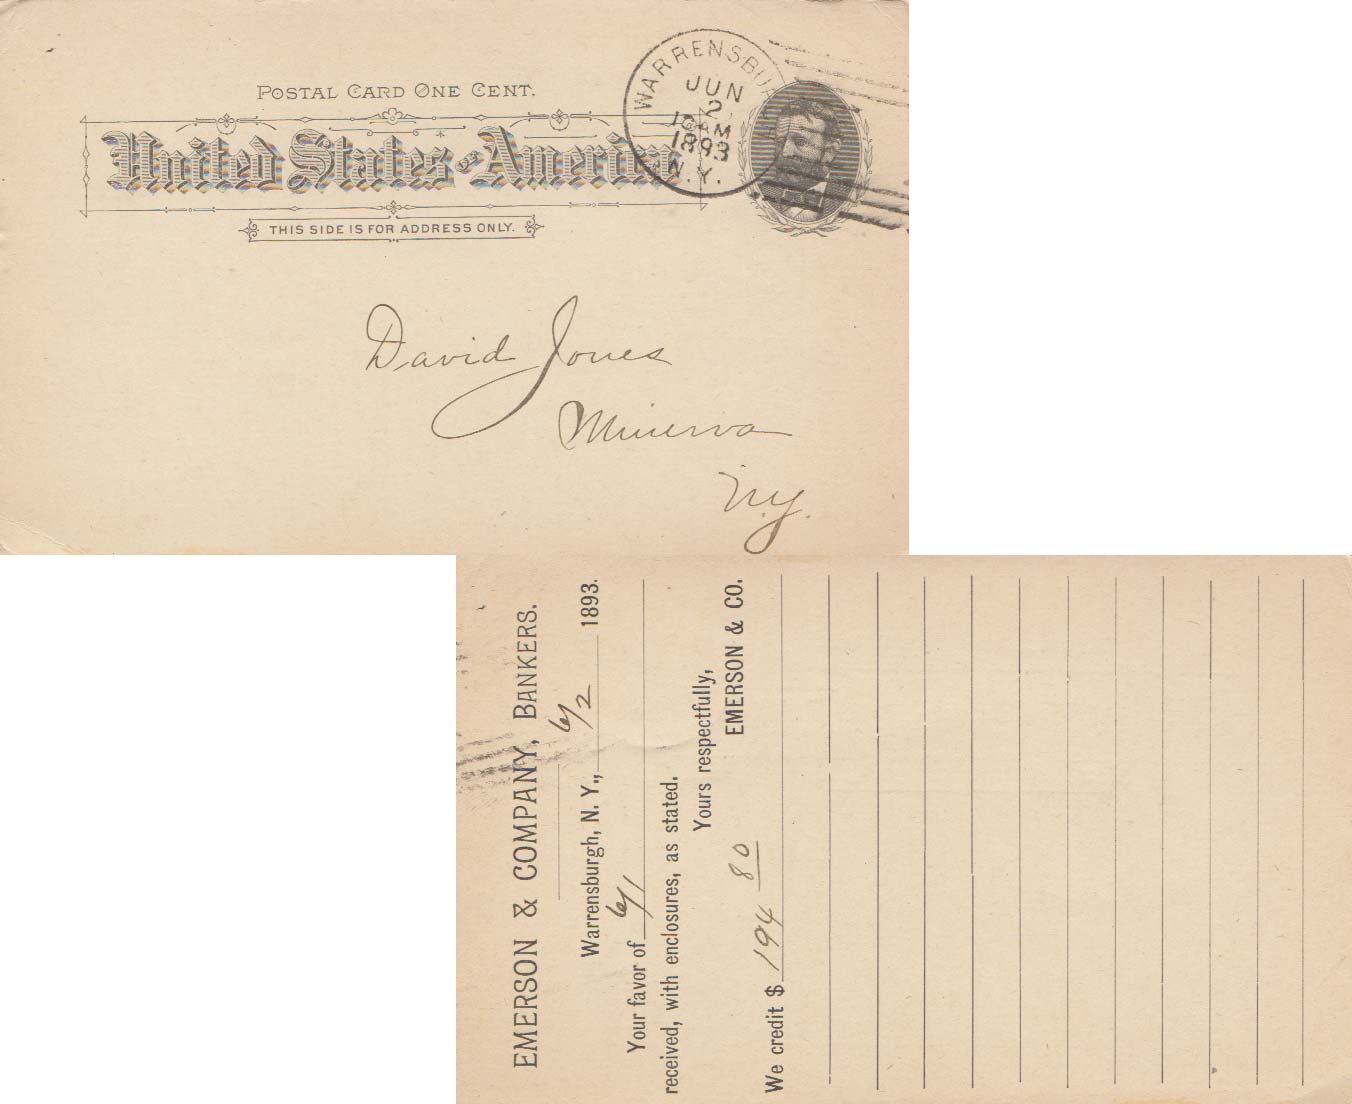 POSTAL CARD ONE CENT.
United States of America
THIS SIDE IS FOR ADDRESS ONLY.
WARRENSBU
JUN
2
10AM
1893
N.Y.
David Jones
Minerva
N.Y.
EMERSON & COMPANY, BANKERS.
Warrensburgh, N. Y., 6/2 1893.
Your favor of 6/1
received, with enclosures, as stated.
Yours respectfully,
EMERSON & CO.
We credit $ 194 80